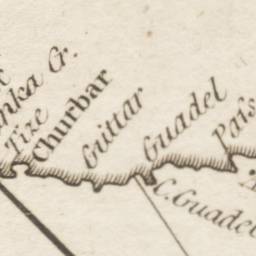 nka G.
Tize
Churbar
Guttar
Guadel
Pass
C. Guadel